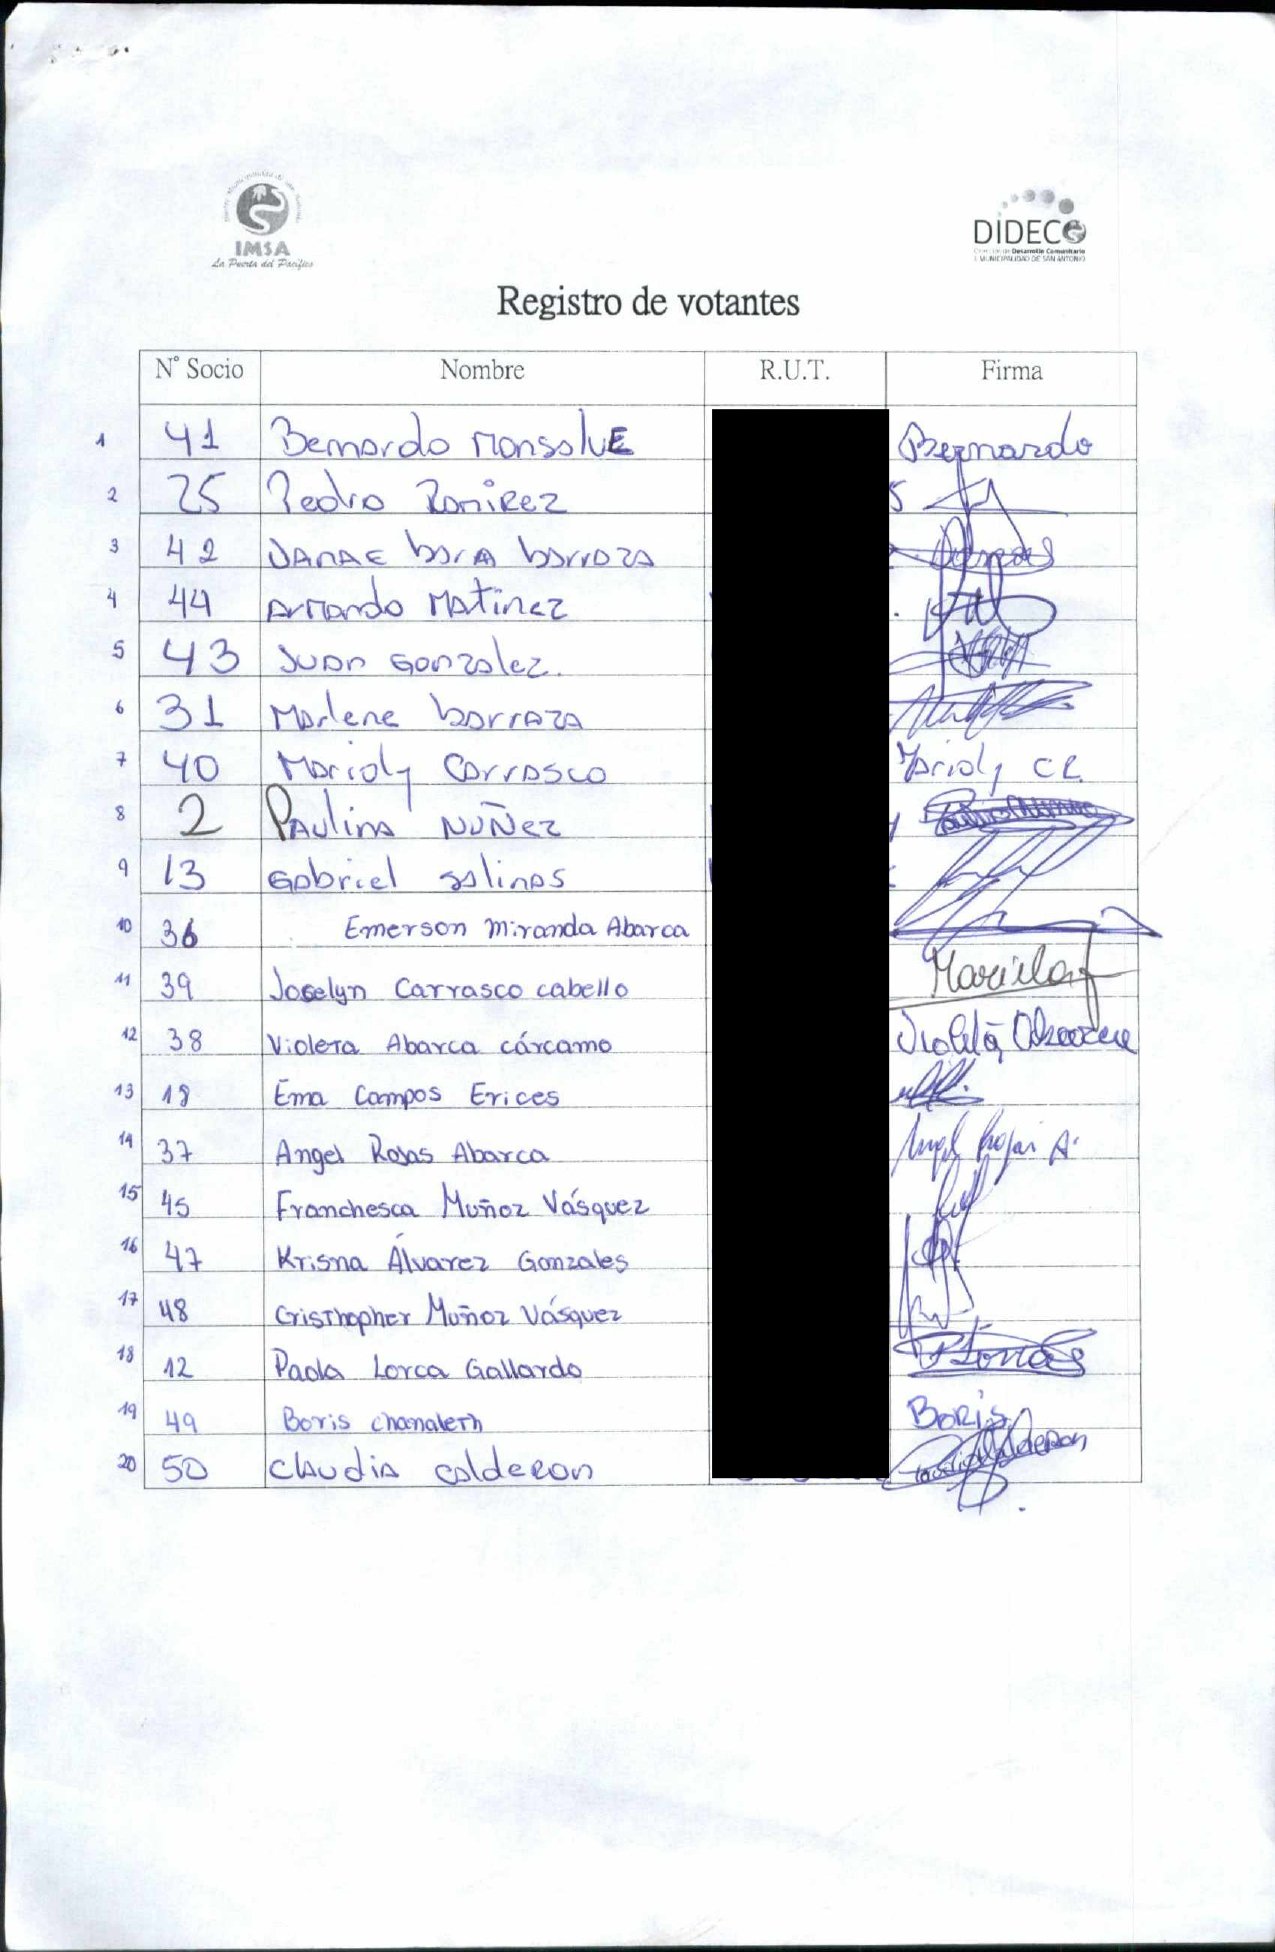 IMSA
La Puerta del Pacífico
DIDECO
Desarrollo Comunitario
I. MUNICIPALIDAD DE SAN ANTONIO
Registro de votantes
N° Socio Nombre R.U.T. Firma
1 41 Bernardo MonsalvE Bernardo
2 25 Pedro Ramirez
3 42 DANAE borA barraza
4 44 Armando Matinez
5 43 Juan Gonzalez.
6 31 Marlene barraza
7 40 Marioly Carrasco Marioly C R.
8 2 Paulina NÚÑez
9 13 Gabriel salinas
10 36 Emerson Miranda Abarca
11 39 Joselyn Carrasco cabello
12 38 Violeta Abarca cárcamo Violeta
13 18 Ema Campos Erices
14 37 Angel Rojas Abarca Angel Rojas A.
15 45 Franchesca Muñoz Vásquez
16 47 Krisna Álvarez Gonzales
17 48 Cristhopher Muñoz Vásquez
18 12 Paola Lorca Gallardo
19 49 Boris chanaleth Boris
20 50 Claudia calderon